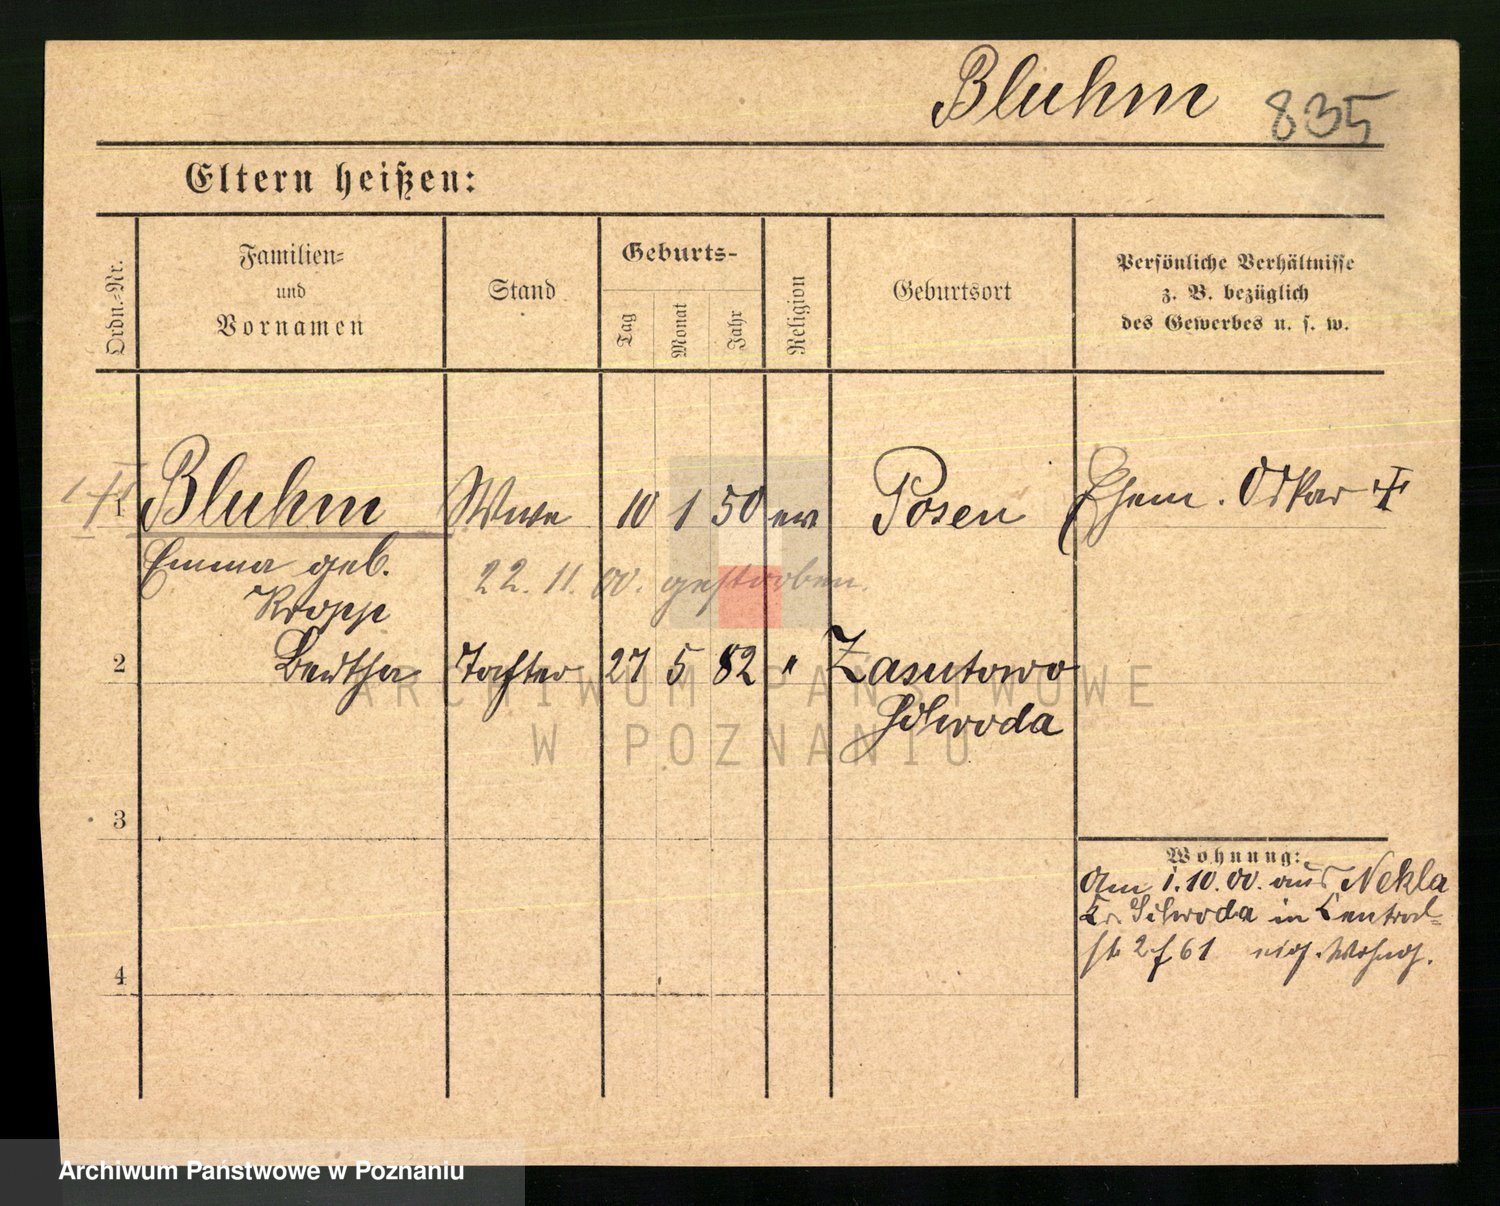 Bluhm 835
Eltern heißen:
Ordn.=Nr.
Familien=
und
Vornamen
Stand
Geburts-
Tag
Monat
Jahr
Religion
Geburtsort
Persönliche Verhältnisse
z. B. bezüglich
des Gewerbes u. s. w.
1 Bluhm Wwe 10 1 50 ev Posen Ehem. Oskar ✝
Emma geb.
Kropp
22.11.00. gestorben.
2 Bertha Tochter 27 5 82 " Zasutowo
Schroda
3
4
Wohnung:
Am 1.10.00. aus Nekla
Kr. Schroda in Central=
str 2 f 61 eig. Wohng.
ARCHIWUM PAŃSTWOWE
W POZNANIU
Archiwum Państwowe w Poznaniu